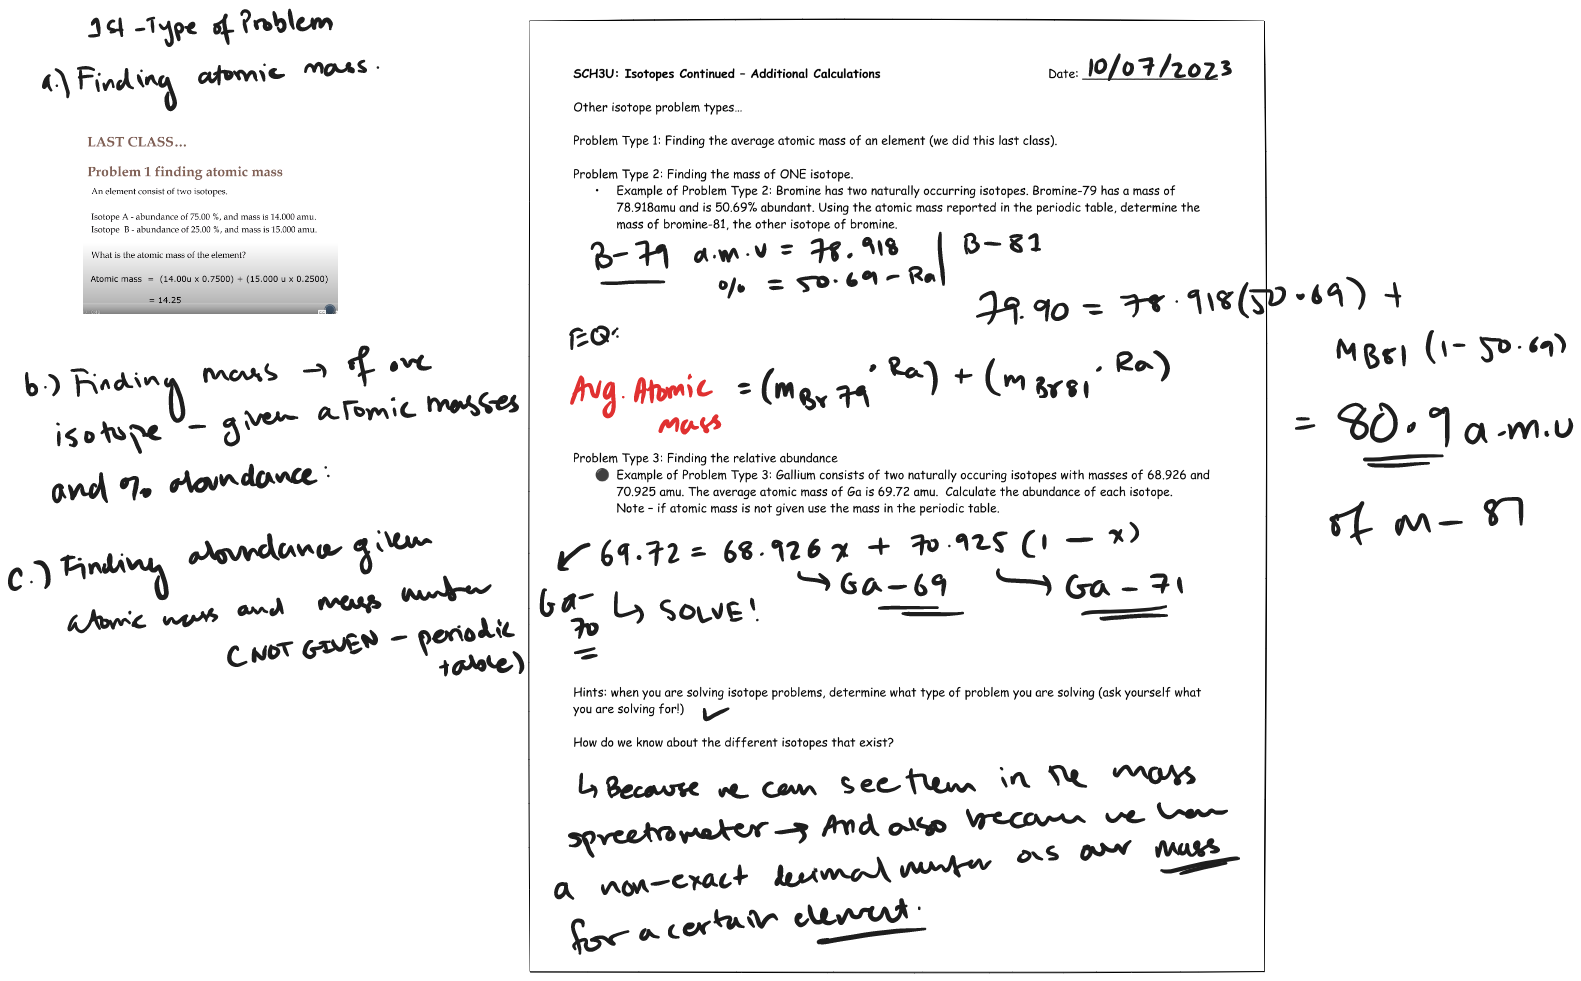 1st - Type of Problem
a.) Finding atomic mass.
LAST CLASS...
Problem 1 finding atomic mass
An element consist of two isotopes.
Isotope A - abundance of 75.00 %, and mass is 14.000 amu.
Isotope B - abundance of 25.00 %, and mass is 15.000 amu.
What is the atomic mass of the element?
Atomic mass = (14.00u x 0.7500) + (15.000 u x 0.2500)
= 14.25
b.) Finding mass → of one
isotope - given atomic masses
and % abundance:
c.) Finding abundance given
atomic mass and mass number
(NOT GIVEN - periodic
table)
SCH3U: Isotopes Continued – Additional Calculations
Date: 10/07/2023
Other isotope problem types…
Problem Type 1: Finding the average atomic mass of an element (we did this last class).
Problem Type 2: Finding the mass of ONE isotope.
• Example of Problem Type 2: Bromine has two naturally occurring isotopes. Bromine-79 has a mass of
78.918amu and is 50.69% abundant. Using the atomic mass reported in the periodic table, determine the
mass of bromine-81, the other isotope of bromine.
B-79 a.m.u = 78.918 | B-81
% = 50.69 - Ra
79.90 = 78.918(50.69) +
MB81 (1 - 50.69)
= 80.9 a.m.u
of m - 81
EQ:
Avg. Atomic = (mBr79 · Ra) + (mBr81 · Ra)
Mass
Problem Type 3: Finding the relative abundance
● Example of Problem Type 3: Gallium consists of two naturally occuring isotopes with masses of 68.926 and
70.925 amu. The average atomic mass of Ga is 69.72 amu. Calculate the abundance of each isotope.
Note – if atomic mass is not given use the mass in the periodic table.
↙ 69.72 = 68.926 x + 70.925 (1 - x)
↳ Ga-69 ↳ Ga-71
Ga-70 ↳ SOLVE!
Hints: when you are solving isotope problems, determine what type of problem you are solving (ask yourself what
you are solving for!) ✓
How do we know about the different isotopes that exist?
↳ Because we can see them in the mass
spreetrometer → And also because we have
a non-exact decimal number as our mass
for a certain element.